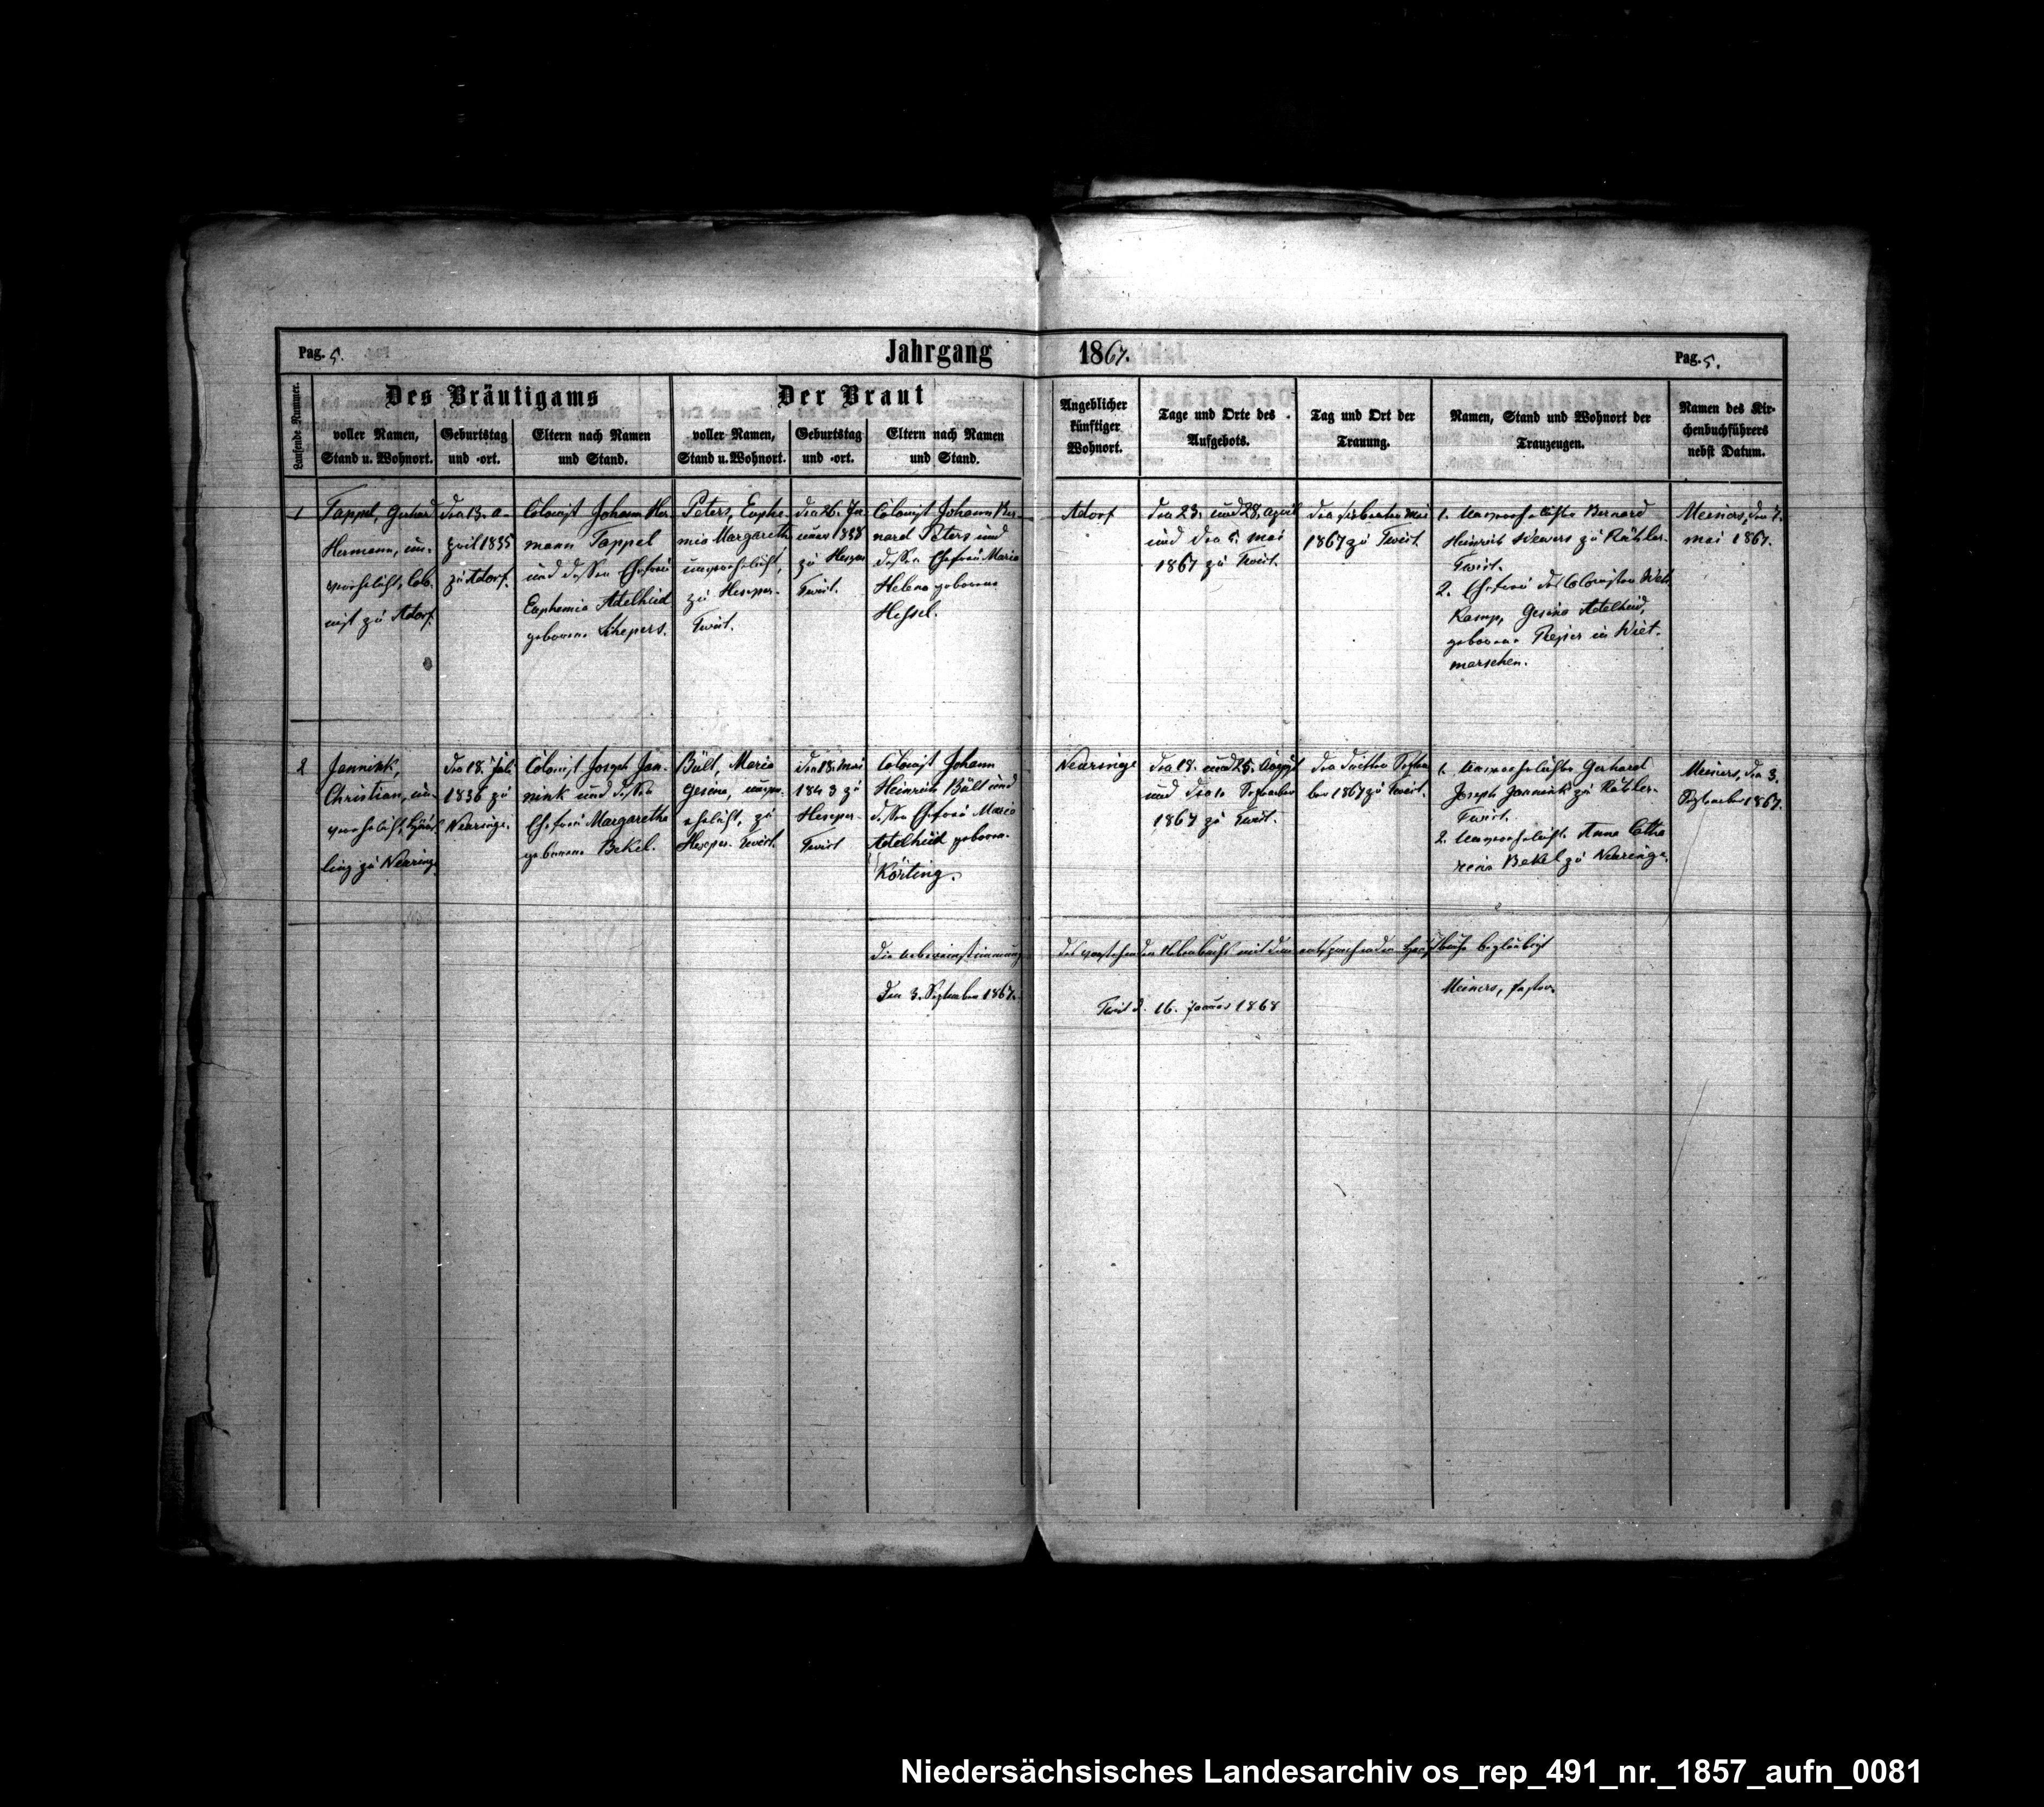 Pag. 5.
Jahrgang 1867.
Pag. 5.
Laufende Nummer.
Des Bräutigams
voller Namen,
Stand u. Wohnort.
Geburtstag
und -ort.
Eltern nach Namen
und Stand.
Der Braut
voller Namen,
Stand u. Wohnort.
Geburtstag
und -ort.
Eltern nach Namen
und Stand.
Angeblicher
künftiger
Wohnort.
Tage und Orte des
Aufgebots.
Tag und Ort der
Trauung.
Namen, Stand und Wohnort der
Trauzeugen.
Namen des Kir-
chenbuchführers
nebst Datum.
1
Tappel, Gerhard
Hermann, un-
verehelicht, Colo-
nist zu Adorf.
den 13. A-
pril 1835
zu Adorf.
Colonist Johann Her-
mann Tappel
und dessen Ehefrau
Euphemia Adelheid
geborene Schepers.
Peters, Euphe-
mia Margaretha
unverehelicht,
zu Heseper-
Twist.
den 26. Ja-
nuar 1838
zu Heseper
Twist.
Colonist Johann Ber-
nard Peters und
dessen Ehefrau Maria
Helena geborene
Hessel.
Adorf
den 23. und 28. April
und den 5. Mai
1867 zu Twist.
den siebenten Mai
1867 zu Twist.
1. Unverehelichter Bernard
Heinrich Wewers zu Rühler-
Twist.
2. Ehefrau des Colonisten
Kamp, Gesina Adelheid,
geborene in Wiet-
marschen.
Meiners, den 7.
Mai 1867.
2
Jannink,
Christian, un-
verehelicht, Häus-
ling zu Neuringe
den 18. Juli
1836 zu
Neuringe.
Colonist Joseph Jan-
nink und dessen
Ehefrau Margaretha
geborene Bekel.
Bült, Maria
Gesina, unver-
ehelicht, zu
Heseper-Twist.
den 18. Mai
1843 zu
Heseper-
Twist
Colonist Johann
Heinrich Bült und
dessen Ehefrau Maria
Adelheid geborene
Körting.
Neuringe
den 18. und 25. August
und den 1. September
1867 zu Twist.
den dritten Septem
ber 1867 zu Twist.
1. Unverehelichter Gerhard
Joseph Jannink zu Rühler-
Twist.
2. Unverehelichte Anna Catha
rina Bekel zu Neuringe.
Meiners, den 3.
September 1867.
Die Uebereinstimmung des vorstehenden Nebenbuchs mit dem entsprechenden Hauptbuche beglaubigt
Den 3. September 1867.
Twist d. 16. Januar 1868
Meiners, Pastor.
Niedersächsisches Landesarchiv os_rep_491_nr._1857_aufn_0081